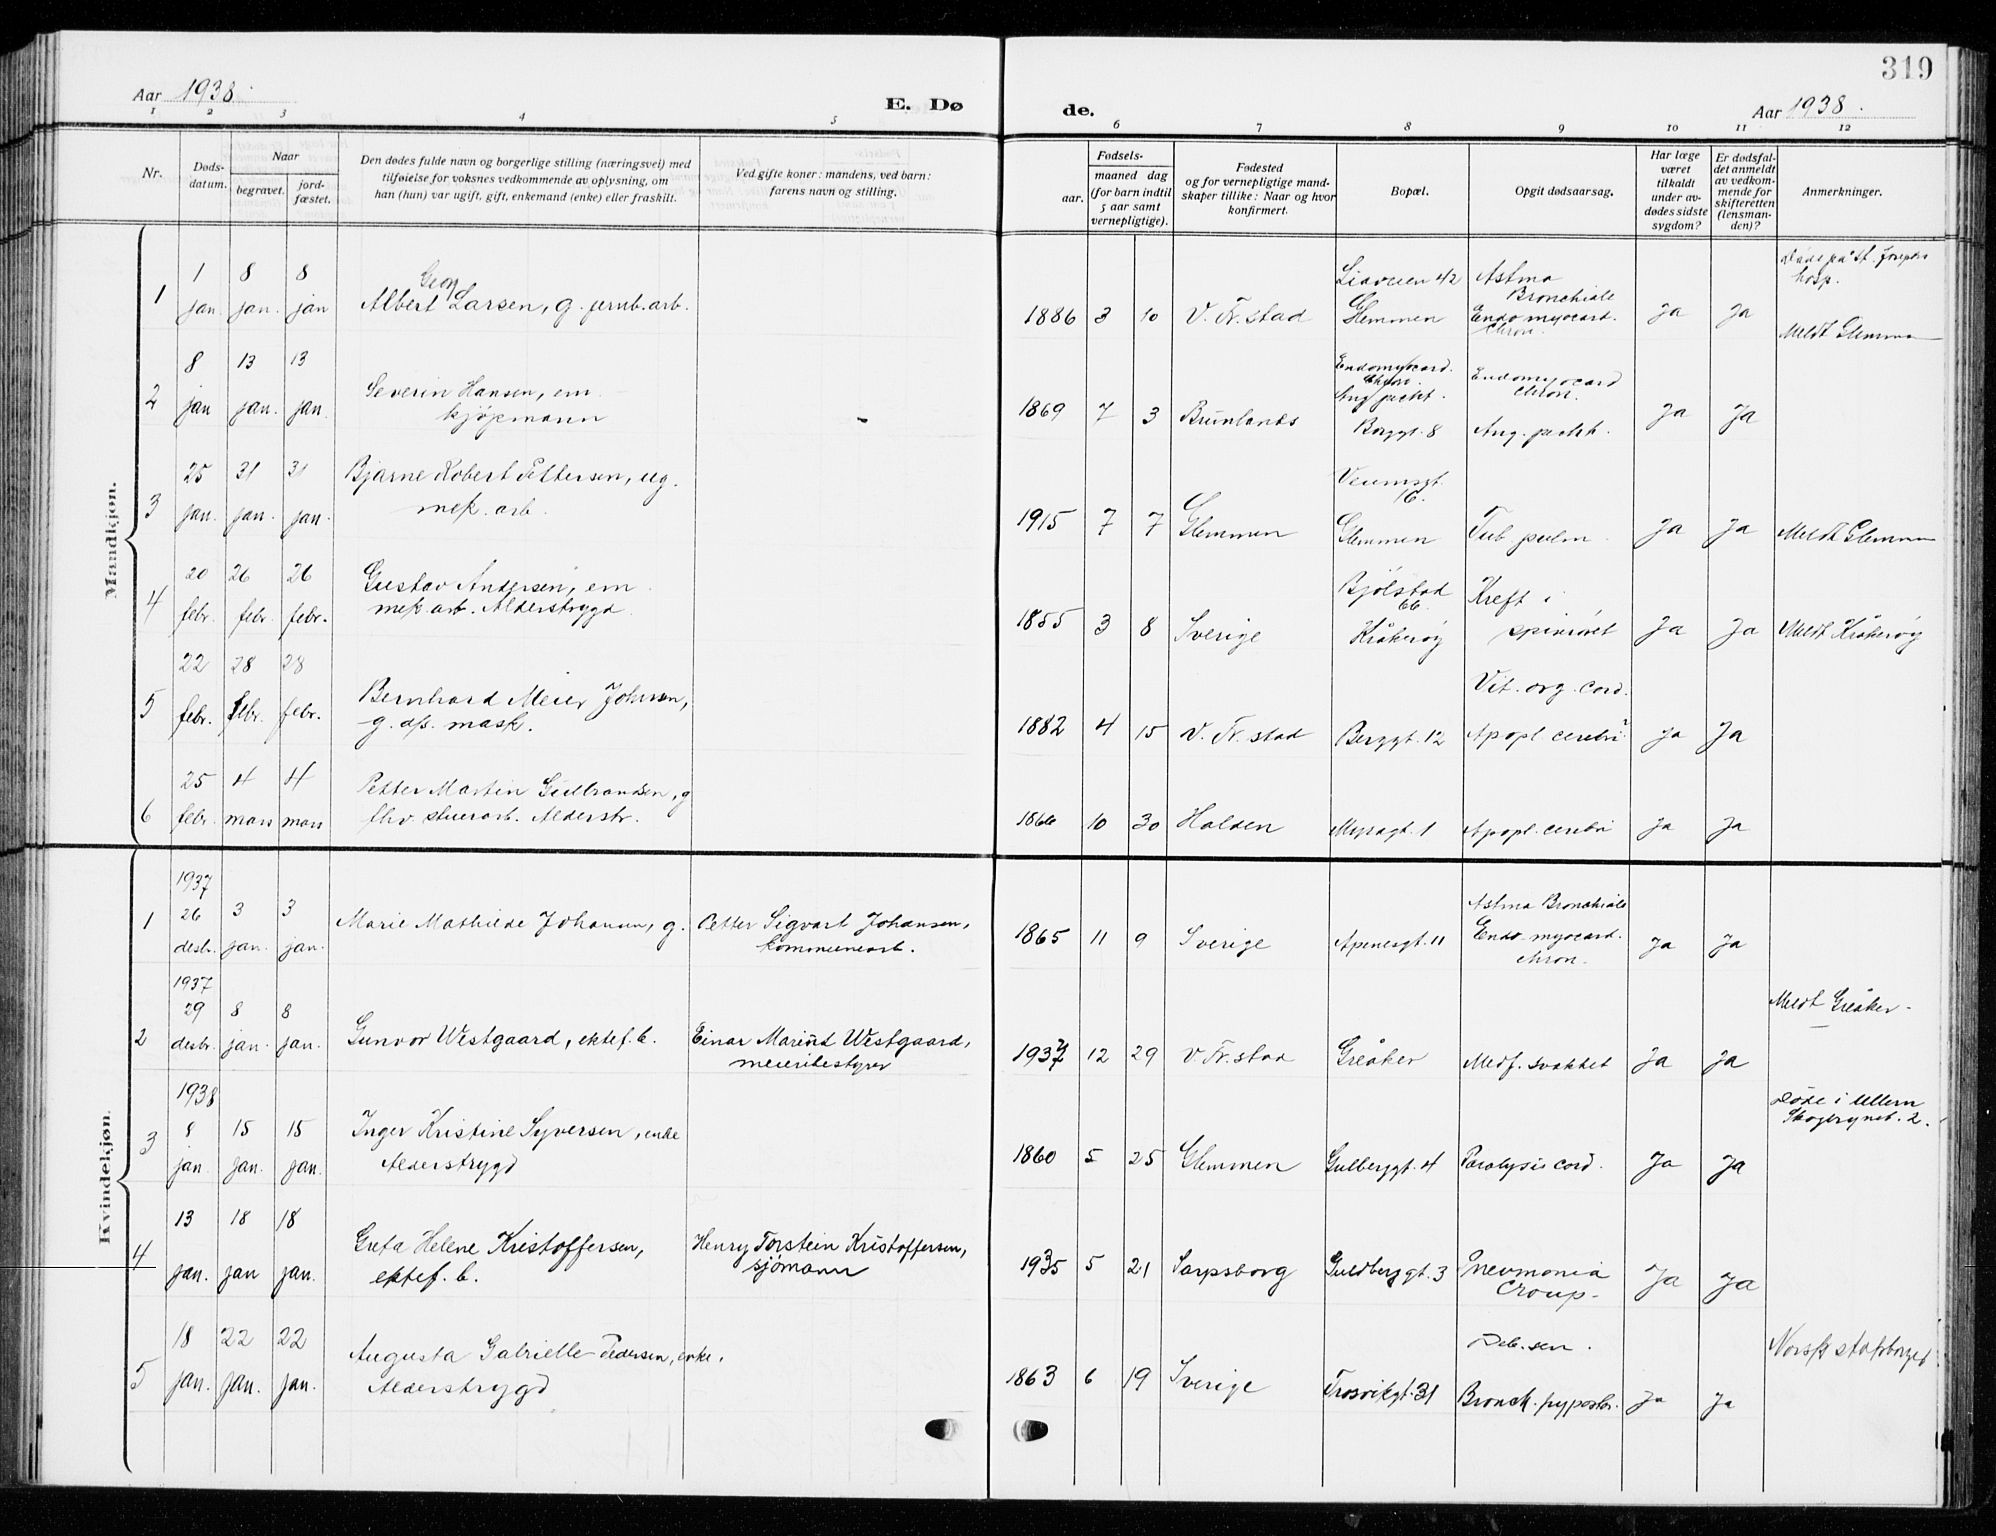 319
Aar 1938
E. Dø de.
Aar 1938.
1 2 3 4 5 6 7 8 9 10 11 12
Nr.
Døds-
datum.
Naar
begravet.
jord-
fæstet.
Den dødes fulde navn og borgerlige stilling (næringsvei) med
tilføielse for voksnes vedkommende av oplysning, om
han (hun) var ugift, gift, enkemand (enke) eller fraskilt.
Ved gifte koner: mandens, ved barn:
farens navn og stilling.
Fødsels-
aar.
maaned dag
(for barn indtil
5 aar samt
vernepligtige).
Fødested
og for vernepligtige mand-
skaper tillike: Naar og hvor
konfirmert.
Bopæl.
Opgit dødsaarsag.
Har læge
været
tilkaldt
under av-
dødes sidste
sygdom?
Er dødsfal-
det anmeldt
av vedkom-
mende for
skifteretten
(lensman-
den)?
Anmerkninger.
Mandkjøn.
1
1 jan.
8 jan.
8 jan
Georg
Albert Larsen, g. jernb.arb.
1886 3 10
V. Fr.stad
Liaveien 42
Glemmen
Astma
Bronchiale
Endo myocard.
Chron.
Ja
Ja
Døde på St. Josephs
hosp.
Meldt Glemmen
2
8 jan
13 jan.
13 jan.
Severin Hansen, em
kjøpmann
1869 7 3
Brunlanes
Endomyocard.
Chron.
Ang pekt.
Borggt. 8
Endomyocard
Chron.
Ang. pekt.
Ja
Ja
3
25 jan.
31 jan.
31 jan.
Bjarne Robert Pettersen, ug.
mek. arb.
1915 7 7
Glemmen
Veumsgt.
16.
Glemmen
Tub. pulm.
Ja
Ja
Meldt Glemmen
4
20 febr.
26 febr.
26 febr.
Gustav Andersen, em.
mek. arb. Alderstrygd.
1855 3 8
Sverige
Bjølstad
66.
Kråkerøy
Kreft i
spiserøret
Ja
Ja
Meldt Kråkerøy
5
22 febr.
28 febr.
28 febr.
Bernhard Meier Johnsen,
g. mask.
1882 4 15
V. Fr. stad
Berggt. 12
Vit. org. cord.
Apopl. cerebri
Ja
Ja
6
25 febr.
4 mars
4 mars
Petter Martin Gulbrandsen, g
fhv. stuerarb. Alderstr.
1866 10 30
Halden
Myragt. 1
Apopl. cerebri
Ja
Ja
Kvindekjøn.
1
1937
26 desbr.
3 jan.
3 jan.
Marie Mathilde Johansen, g.
Petter Sigvart Johansen,
kommunearb.
1865 11 9
Sverige
Apenesgt. 11
Astma Bronchiale
Endo-myocard.
chron.
Ja
Ja
2
1937
29 desbr.
8 jan.
8 jan.
Gunvor Westgaard, ektef. b.
Einar Marius Westgaard,
meieribestyrer
1937 12 29
V. Fr. stad
Greåker
Medf. svakhet
Ja
Ja
Meldt Greåker
3
1938
8 jan.
15 jan.
15 jan.
Inger Kristine Syversen, enke
Alderstrygd
1860 5 25
Glemmen
Gulberggt. 4
Paralysis cord.
Ja
Ja
Døde i Ullern
Skogbrynet. 2.
4
13 jan.
18 jan
18 jan.
Greta Helene Kristoffersen,
ektef. b.
Henry Torstein Kristoffersen,
sjømann
1935 5 21
Sarpsborg
Guldberggt. 3
Pneumonia
Croup.
Ja
Ja
5
18 jan.
22 jan.
22 jan.
Augusta Gabrielle Pedersen, enke.
Alderstrygd
1863 6 19
Sverige
Trosvikgt. 31
Deb. sen.
Bronch. hypostr.
Ja
Ja
Norsk statsborger